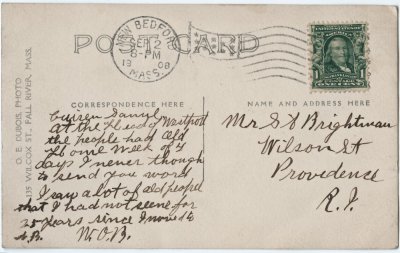 POST CARD
NEW BEDFORD
SEP 2
6 - PM
1908
MASS.
1
O. E. DUBOIS, PHOTO
1135 WILCOX ST., FALL RIVER, MASS.
CORRESPONDENCE HERE
NAME AND ADDRESS HERE
at the Head of Westport
the people had Old
Home Week of 4
days I never though
to send you word
I saw a lot of old people
that I had not seen for
25 years since I moved to
N.B. W.O.B.
Mr S A Brightman
Wilson St
Providence
R.I.